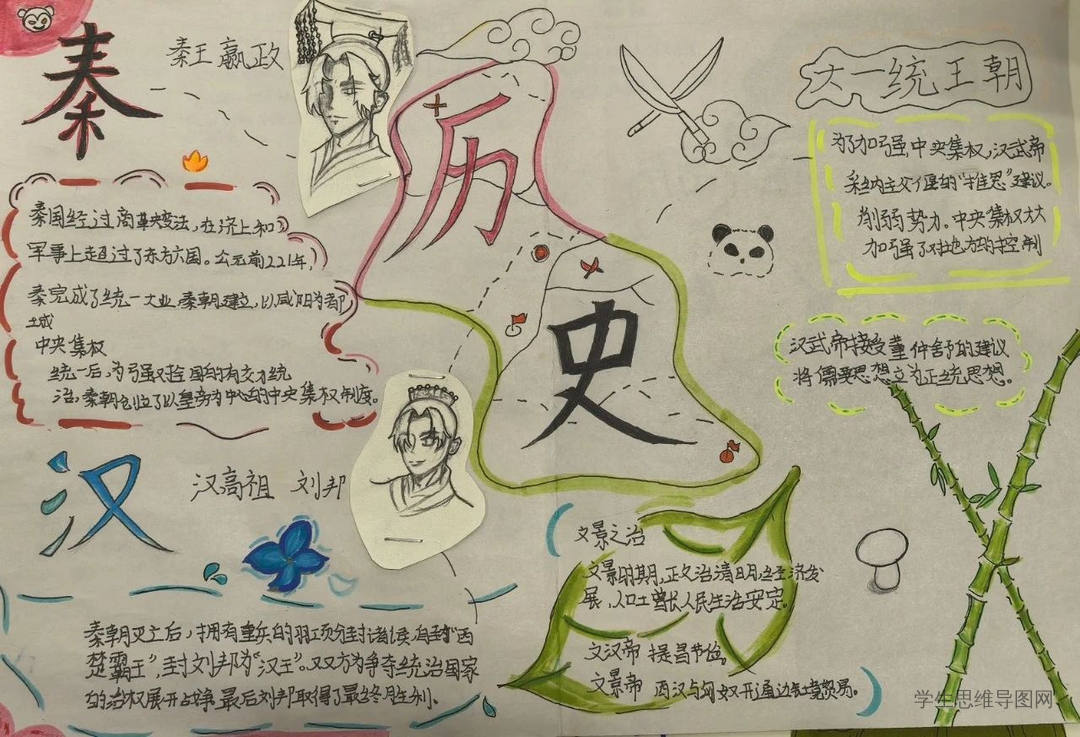 秦
秦王嬴政
历
史
大一统王朝
秦国经过商鞅变法，在济上和
军事上超过了东方六国。公元前221年，
秦完成了统一大业，秦朝建立，以咸阳为都
城
中央集权
统一后，为
治，秦朝创立了以皇帝为中心的中央集权制度。
为了加强中央集权，汉武帝
采纳主父偃的“推恩”建议。
削弱势力。中央集权大大
加强了对地方的控制
汉武帝接受董仲舒的建议
将儒家思想立为正统思想。
汉
汉高祖 刘邦
秦朝灭亡后，拥有重兵的羽项分封诸侯，自封“西
楚霸王”，封刘邦为“汉王”。双方为争夺统治国家
的治权展开战争，最后刘邦取得了最终胜利。
文景之治
文景时期，正攵治清明，经济发
展，人口土曾长人民生活安定。
文汉帝 提昌节俭，
文景帝 西汉与匈奴开通边境贸易。
学生思维导图网